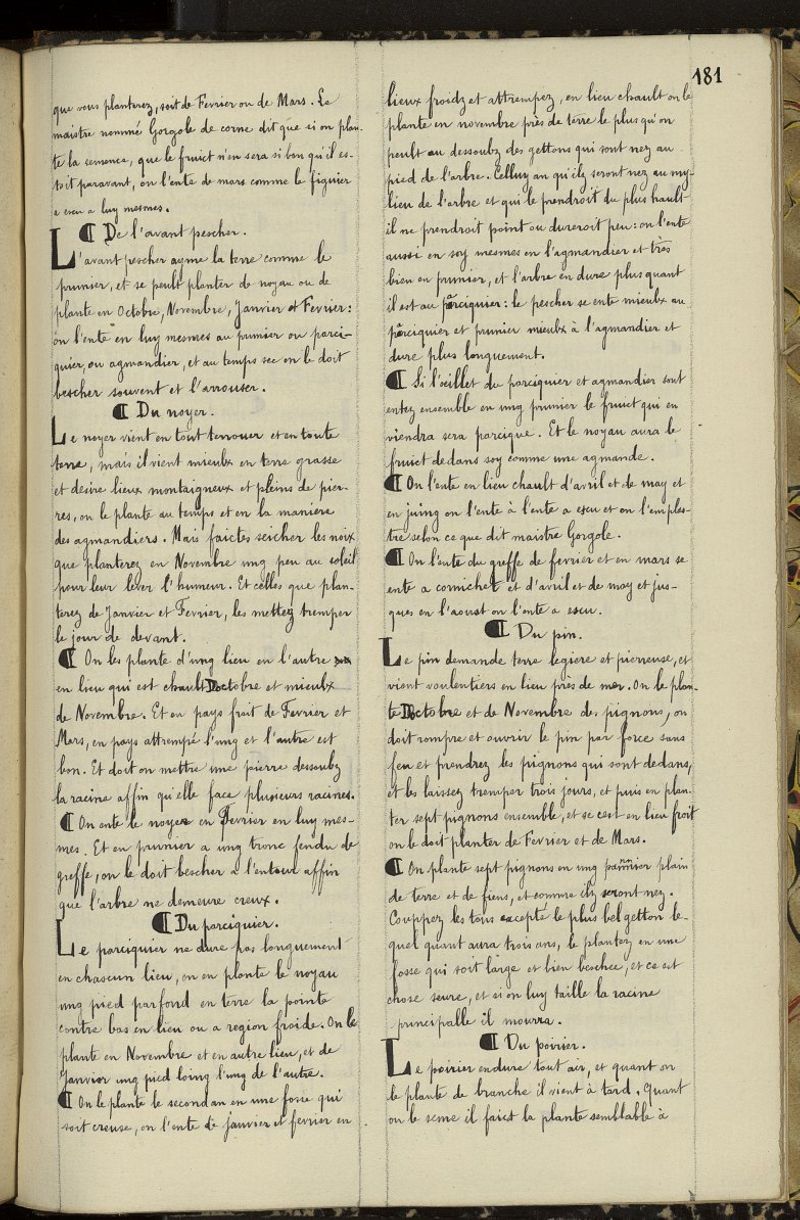 181
que vous planterez, soit de Fevrier ou de Mars. Le
maistre nommé Gorgole de corne dit que si on plan-
te la semence, que le fruict n'en sera si bon qu'il es-
toit paravant, on l'ente de mars comme le figuier
a escu a luy mesmes.
¶ De l'avant pescher.
L'avant pescher ayme la terre comme le
prunier, et se peult planter de noyau ou de
plante en Octobre, Novembre, Janvier et Fevrier:
on l'ente en luy mesmes au prunier ou parci-
quier, ou agmandier, et au temps sec on le doit
bescher souvent et l'arrouser.
¶ Du noyer.
Le noyer vient en tout terrouer et en toute
terre, mais il vient mieulx en terre grasse
et desire lieux montaigneux et pleins de pier-
res, on le plante au temps et en la maniere
des agmandiers. Mais faictes seicher les noix
que planterez en Novembre ung peu au soleil
pour leur lever l'humeur. Et celles que plan-
terez de Janvier et Fevrier, les mettez tremper
le jour de devant.
¶ On les plante d'ung lieu en l'autre
en lieu qui est chault Doctobre et mieulx
de Novembre. Et en pays froit de Fevrier et
Mars, en pays attrempé l'ung et l'autre est
bon. Et doit on mettre une pierre dessoubz
la racine affin qu'elle face plusieurs racines.
¶ On ente le noyer en Fevrier en luy mes-
mes. Et en prunier a ung tronc fendu de
greffe, on le doit bescher a l'entour affin
que l'arbre ne demeure creux.
¶ Du parciquier.
Le parciquier ne dure pas longuement
en chascun lieu, on en plante le noyau
ung pied parfond en terre la pointe
contre bas en lieu ou a region froide. On le
plante en Novembre et en autre lieu, et de
Janvier ung pied loing l'ung de l'autre.
¶ On le plante le second an en une fosse qui
soit creuse, on l'ente de janvier et fevrier en
lieux froidz et attrempez, en lieu chault on le
plante en novembre près de terre le plus qu'on
peult au dessoubz des gettons qui sont nez au
pied de l'arbre. Celluy an qu'ilz seront nez au my-
lieu de l'arbre et qui le prendroit du plus hault
il ne prendroit point ou dureroit peu: on l'ente
aussi en soy mesmes en l'agmandier et très
bien en prunier, et l'arbre en dure plus quant
il est au parciquier: le pescher se ente mieulx au
parciquier et prunier mieulx à l'agmandier et
dure plus longuement.
¶ Si l'oeillet du parciquier et agmandier sont
entez ensemble en ung prunier le fruict qui en
viendra sera parcique. Et le noyau aura le
fruict dedans soy comme une agmande.
¶ On l'ente en lieu chault d'avril et de may et
en juing on l'ente à l'ente a escu et on l'emplas-
tre selon ce que dit maistre Gorgole.
¶ On l'ente du greffe de fevrier et en mars se
ente a cornichet et d'avril et de may et jus-
ques en l'aoust on l'ente a escu.
¶ Du pin.
Le pin demande terre legiere et pierreuse, et
vient voulentiers en lieu près de mer. On le plan-
te Doctobre et de Novembre des pignons, on
doit rompre et ouvrir le pin par force sans
feu et prendrez les pignons qui sont dedans,
et les laissez tremper trois jours, et puis en plan-
ter sept pignons ensemble, et se cest en lieu froit
on le doit planter de Fevrier et de Mars.
¶ On plante sept pignons en ung pannier plain
de terre et de fiens, et comme ilz seront nez.
Couppez les tous excepté le plus bel getton le-
quel quant aura trois ans, le plantez en une
fosse qui soit large et bien beschee, et ce est
chose seure, et si on luy taille la racine
principalle il mourra.
¶ Du poirier.
Le poirier endure tout air, et quant on
le plante de branche il vient à tard. Quant
on le seme il faict la plante semblable à